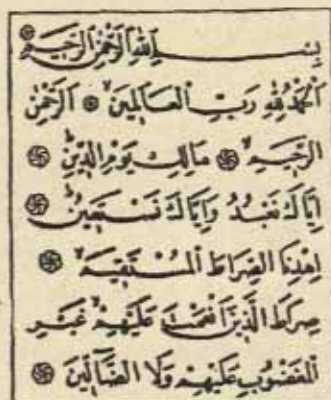 بِسْمِ اللهِ الرَّحْمٰنِ الرَّحِيمِ
اَلْحَمْدُ لِلّٰهِ رَبِّ الْعَالَمِينَ ۞ اَلرَّحْمٰنِ
الرَّحِيمِ ۞ مَالِكِ يَوْمِ الدِّينِ ۞
اِيَّاكَ نَعْبُدُ وَاِيَّاكَ نَسْتَعِينُ ۞
اِهْدِنَا الصِّرَاطَ الْمُسْتَقِيمَ ۞
صِرَاطَ الَّذِينَ اَنْعَمْتَ عَلَيْهِمْ غَيْرِ
الْمَغْضُوبِ عَلَيْهِمْ وَلَا الضَّالِّينَ ۞